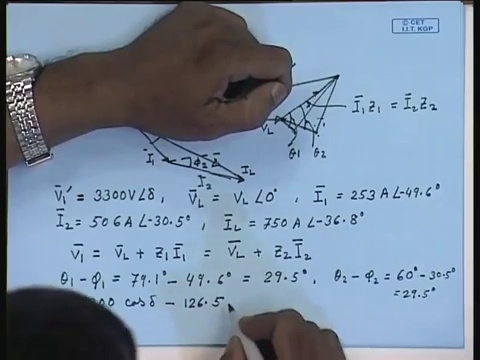 © CET
I.I.T. KGP
Ī₁Z₁ = Ī₂Z₂
V_L
θ₁ θ₂
Ī₁ φ₂
Ī₂ I_L
V̄₁' = 3300V∠δ, V̄_L = V_L∠0°, Ī₁ = 253 A∠-49.6°
Ī₂ = 506 A∠-30.5°, Ī_L = 750 A∠-36.8°
V̄₁ = V̄_L + Z₁Ī₁ = V̄_L + Z₂Ī₂
θ₁ - φ₁ = 79.1° - 49.6° = 29.5°, θ₂ - φ₂ = 60° - 30.5°
= 29.5°
00 cosδ - 126.5